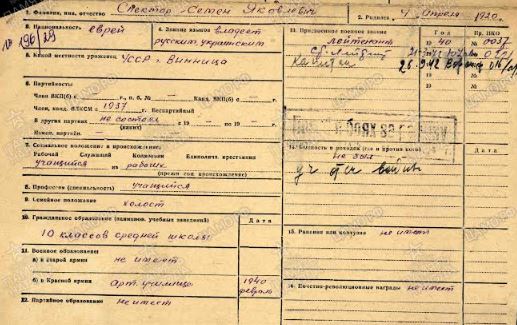 1. Фамилия, имя, отчество Спектор Семен Яковлевич
2. Родился 4 апреля 1920 г.
№ 196/29
3. Национальность еврей
4. Знание языков владеет
русским, украинским
5. Какой местности уроженец УССР г. Винница
6. Партийность:
Член ВКП(б) с — г., п. б. № — Канд. ВКП(б) с — г.
Член, канд. ВЛКСМ с 1937 Беспартийный
В других партиях не состоял с 19 — по 19 —
(каких)
Наимен. партии —
7. Социальное положение и происхождение:
Рабочий Служащий Колхозник
учащийся из рабочих
8. Профессия (специальность) учащийся
9. Семейное положение
холост
10. Гражданское образование (наименов. учебных заведений) Дата
10 классов средней школы
11. Военное образование
а) в старой армии не имеет
б) в Красной армии арт. училище 1940
февраль
12. Партийное образование не имеет
13. Присвоенное военное звание Год № НКО
лейтенант 40 0037
Ст. лейтен.
Капитан 26.9.42
не был
уч. отеч. войны
15. Ранения или контузия не имеет
16. Почетно-революционные награды не имеет